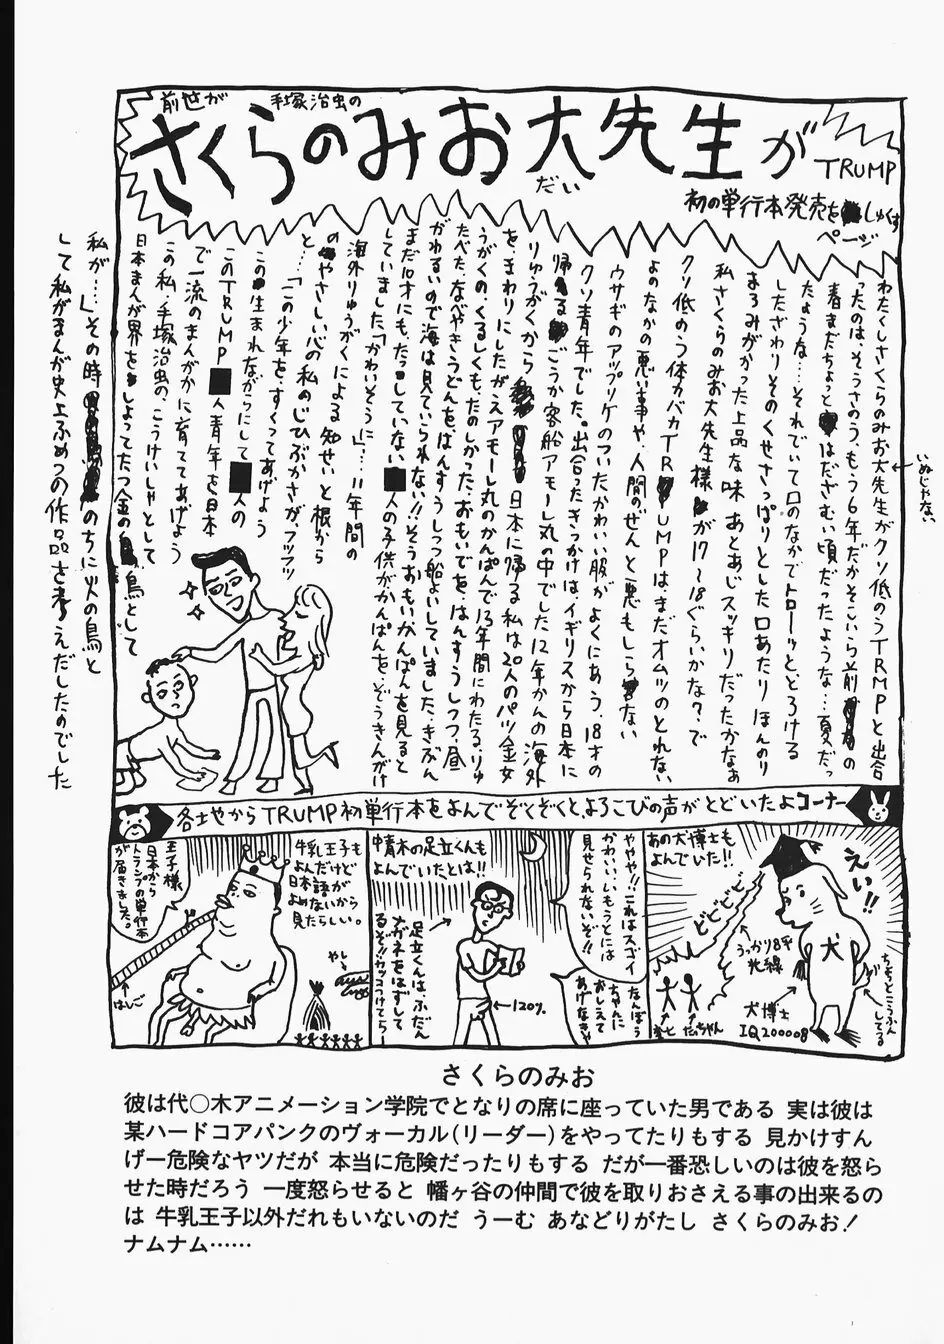 前世が 手塚治虫の
さくらのみお大先生が
だい
TRUMP
初の単行本発売をしゅくす
ページ
わたくしさくらのみお大先生がクソ低のうTRMPと出合
いぬじゃない
ったのは、そうさのう、もう6年だかそこいら前の
春まだちょっとはださむい頃だったような…夏だっ
たような…それでいて口のなかでトローッととろける
したざわりそのくせさっぱりとした口あたりほんのり
まろみがかった上品な味あとあじスッキリだったかなぁ
私さくらのみお大先生様が17〜18ぐらいかな?で
クソ低のう体力バカTRUMPは、まだオムツのとれない
よのなかの悪い事や、人間のぜんと悪もしらない
ウサギのアップリケのついたかわいい服がよくにあう、18才の
クソ青年でした。出合ったきっかけは、イギリスから日本に
帰るごうか客船アモーレ丸の中でした12年かんの海外
りゅうがくから日本に帰る私は20人のパツ金女
をまわりにしたがえアモーレ丸のかんぱんで13年間にわたる、りゅ
うがくの、くるしくも、たのしかった、おもいでを、はんすうしつつ、昼
たべた、なべやきうどんを、はんすうしつつ船よいしていました、きぶん
がわるいので海は見ていられない!!そうおもいかんぱんを見ると
まだ10才にも、たっしていない■人の子供がかんぱんを、ぞうきんがけ
していました「かわいそうに」…11年間の
海外りゅうがくによる知せいと根から
のやさしい心の私のじひぶかさが、フツフツ
と…「この少年を、すくってあげよう
この生まれながらにして■人の
このTRUMP■人青年を日本
で一流のまんがかに育ててあげよう
この私、手塚治虫の、こうけいしゃとして
日本まんが界をしょってたつ金の鳥として
私が…」その時のちに火の鳥と
して私がまんが史上ふめつの作品を考えだしたのでした
各士也からTRUMP初単行本をよんでぞくぞくと、よろこびの声がとどいたよコーナー
あの犬博士も
よんでいた!!
えい!!
ビビビビ
うっかり8平
光線
犬
犬博士
IQ200008
ちょっとこうふん
してる
たいちゃん
ややや!!これはスゴイ
かわいいいもうとには
見せられないぞ!!
なんぼう
ちゃんに
おしえて
あげなきゃ
中青木の足立くんも
よんでいたとは!!
足立くんは、ふだん
メガネをはずして
るぞ!!カッコつけてらー
120%
牛乳王子も
よんだけど
日本語が
よめないから
見たらしい。
王子様
日本から
トランプの単行本
が届きました。
はしご
やし
さくらのみお
彼は代○木アニメーション学院でとなりの席に座っていた男である 実は彼は
某ハードコアパンクのヴォーカル(リーダー)をやってたりもする 見かけすん
げー危険なヤツだが 本当に危険だったりもする だが一番恐しいのは彼を怒ら
せた時だろう 一度怒らせると 幡ヶ谷の仲間で彼を取りおさえる事の出来るの
は 牛乳王子以外だれもいないのだ うーむ あなどりがたし さくらのみお!
ナムナム……